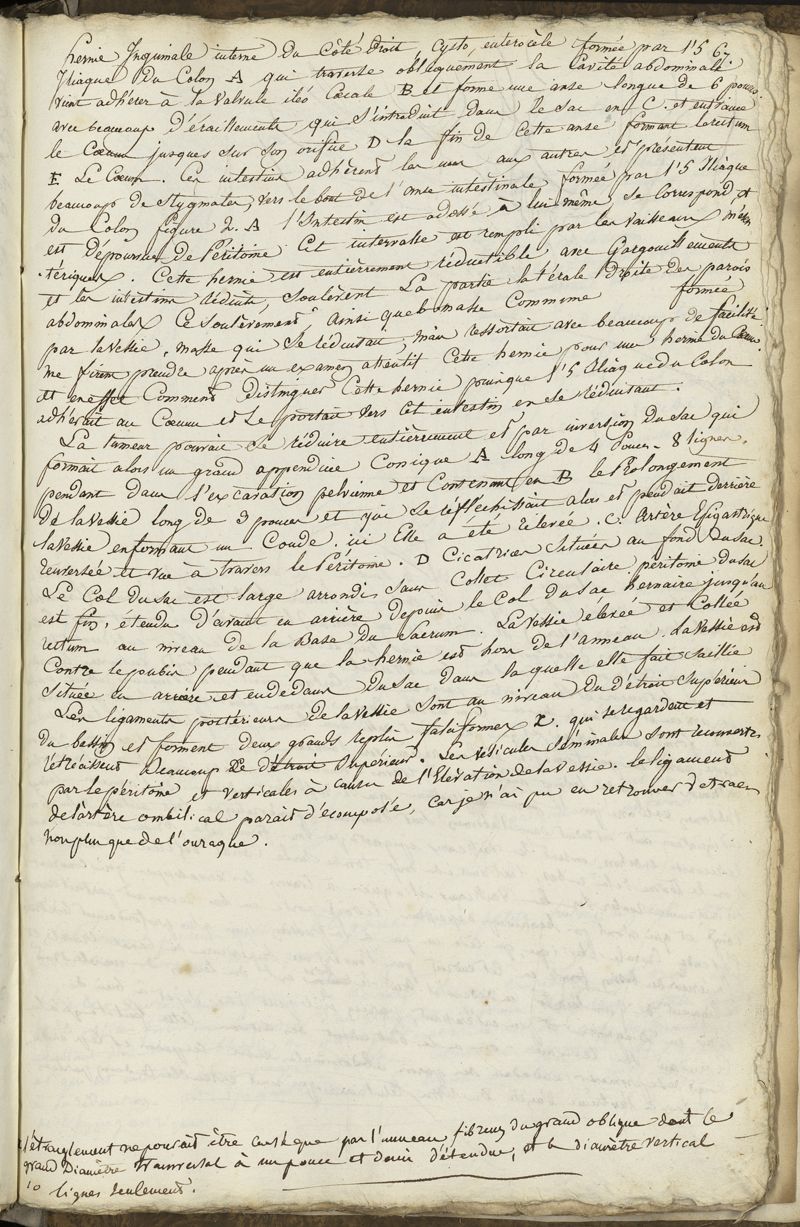 67.
hernie Inguinale interne du Côté droit, Cysto, enterocèle formée par l'S
Iliaque du Colon A qui traverse obliquement la Cavité abdominale
vient adhérer à la Valvule iléo Cœcale B et forme une anse longue de 6 pouces
avec beaucoup d'éraillements qui s'introduit dans le sac en C. et entraine
le Cœcum jusques sur son orifice D la fin de cette anse formant le rectum
E Le Cœcum. Ces intestins adhèrent les uns aux autres et présentent
beaucoup de Stygmates, vers le bout de l'anse intestinale formée par l'S Iliaque
du Colon figure 2. A l'Intestin est adossé à lui même, se Correspond, et
est Dépourvue de Péritoine Cet intervalle est rempli par les Vaisseaux mésen
-tériques. Cette hernie est entièrement réductible avec Gargouillements
et les intestins réduits, soulèvent La partie latérale Droite des parois
abdominales Ce soulèvement, ainsi que la masse Commune formée
par la Vessie, masse qui se réduisait, mais ressortait avec beaucoup de facilité
me firent prendre après un examen attentif Cette hernie pour une hernie du Cœcum.
et en effet Comment distinguer Cette hernie puisque l'S Iliaque du Colon
adhérait au Cœcum et se portait vers Cet intestin en se réduisant.
La tumeur pouvait se réduire entièrement et par inversion du sac qui
formait alors un grand appendice Conique A long de 4 Pouces 8 lignes,
pendant dans l'excavation pelvienne et Contenant en B le Prolongement
de la Vessie long de 3 pouces et qui se réflechissait alors et pendait derrière
la Vessie en formant un Coude, ici Elle a été relevée. C. Artère Epigastrique
renversée et vue à travers le Péritoine. D Cicatrices Situées au fond du sac.
Le Col du sac est large arrondi sans Collet Circulaire, péritoine du sac
est fin, étendu d'avant en arrière depuis le Col du sac herniaire jusqu'au
rectum au niveau de la Base du Sacrum. La Vessie elevée et Collée
Contre le pubis pendant que la hernie est hors de l'anneau. La Vessie est
située en arrière et en dedans du sac dans laquelle elle fait saillie
Les ligaments postérieurs de la Vessie sont au niveau du détroit Supérieur
du bassin et forment deux grands replis falsiformes X. qui se regardent et
rétrécissent beaucoup Le détroit Supérieur. Les Vésicules Séminales sont recouvertes
par le péritoine et Verticales à cause de l'Elévation de la Vessie. le ligament
de l'artère ombilical parait d'écomposé, car je n'ai pu en retrouver de traces
non plus que de l'ouraque.
l'étranglement ne pouvait être causé que par l'anneau fibreux du grand oblique dont le
grand Diamètre transversal à un pouce et demi d'étendue, et le diamètre vertical
10 lignes seulement.